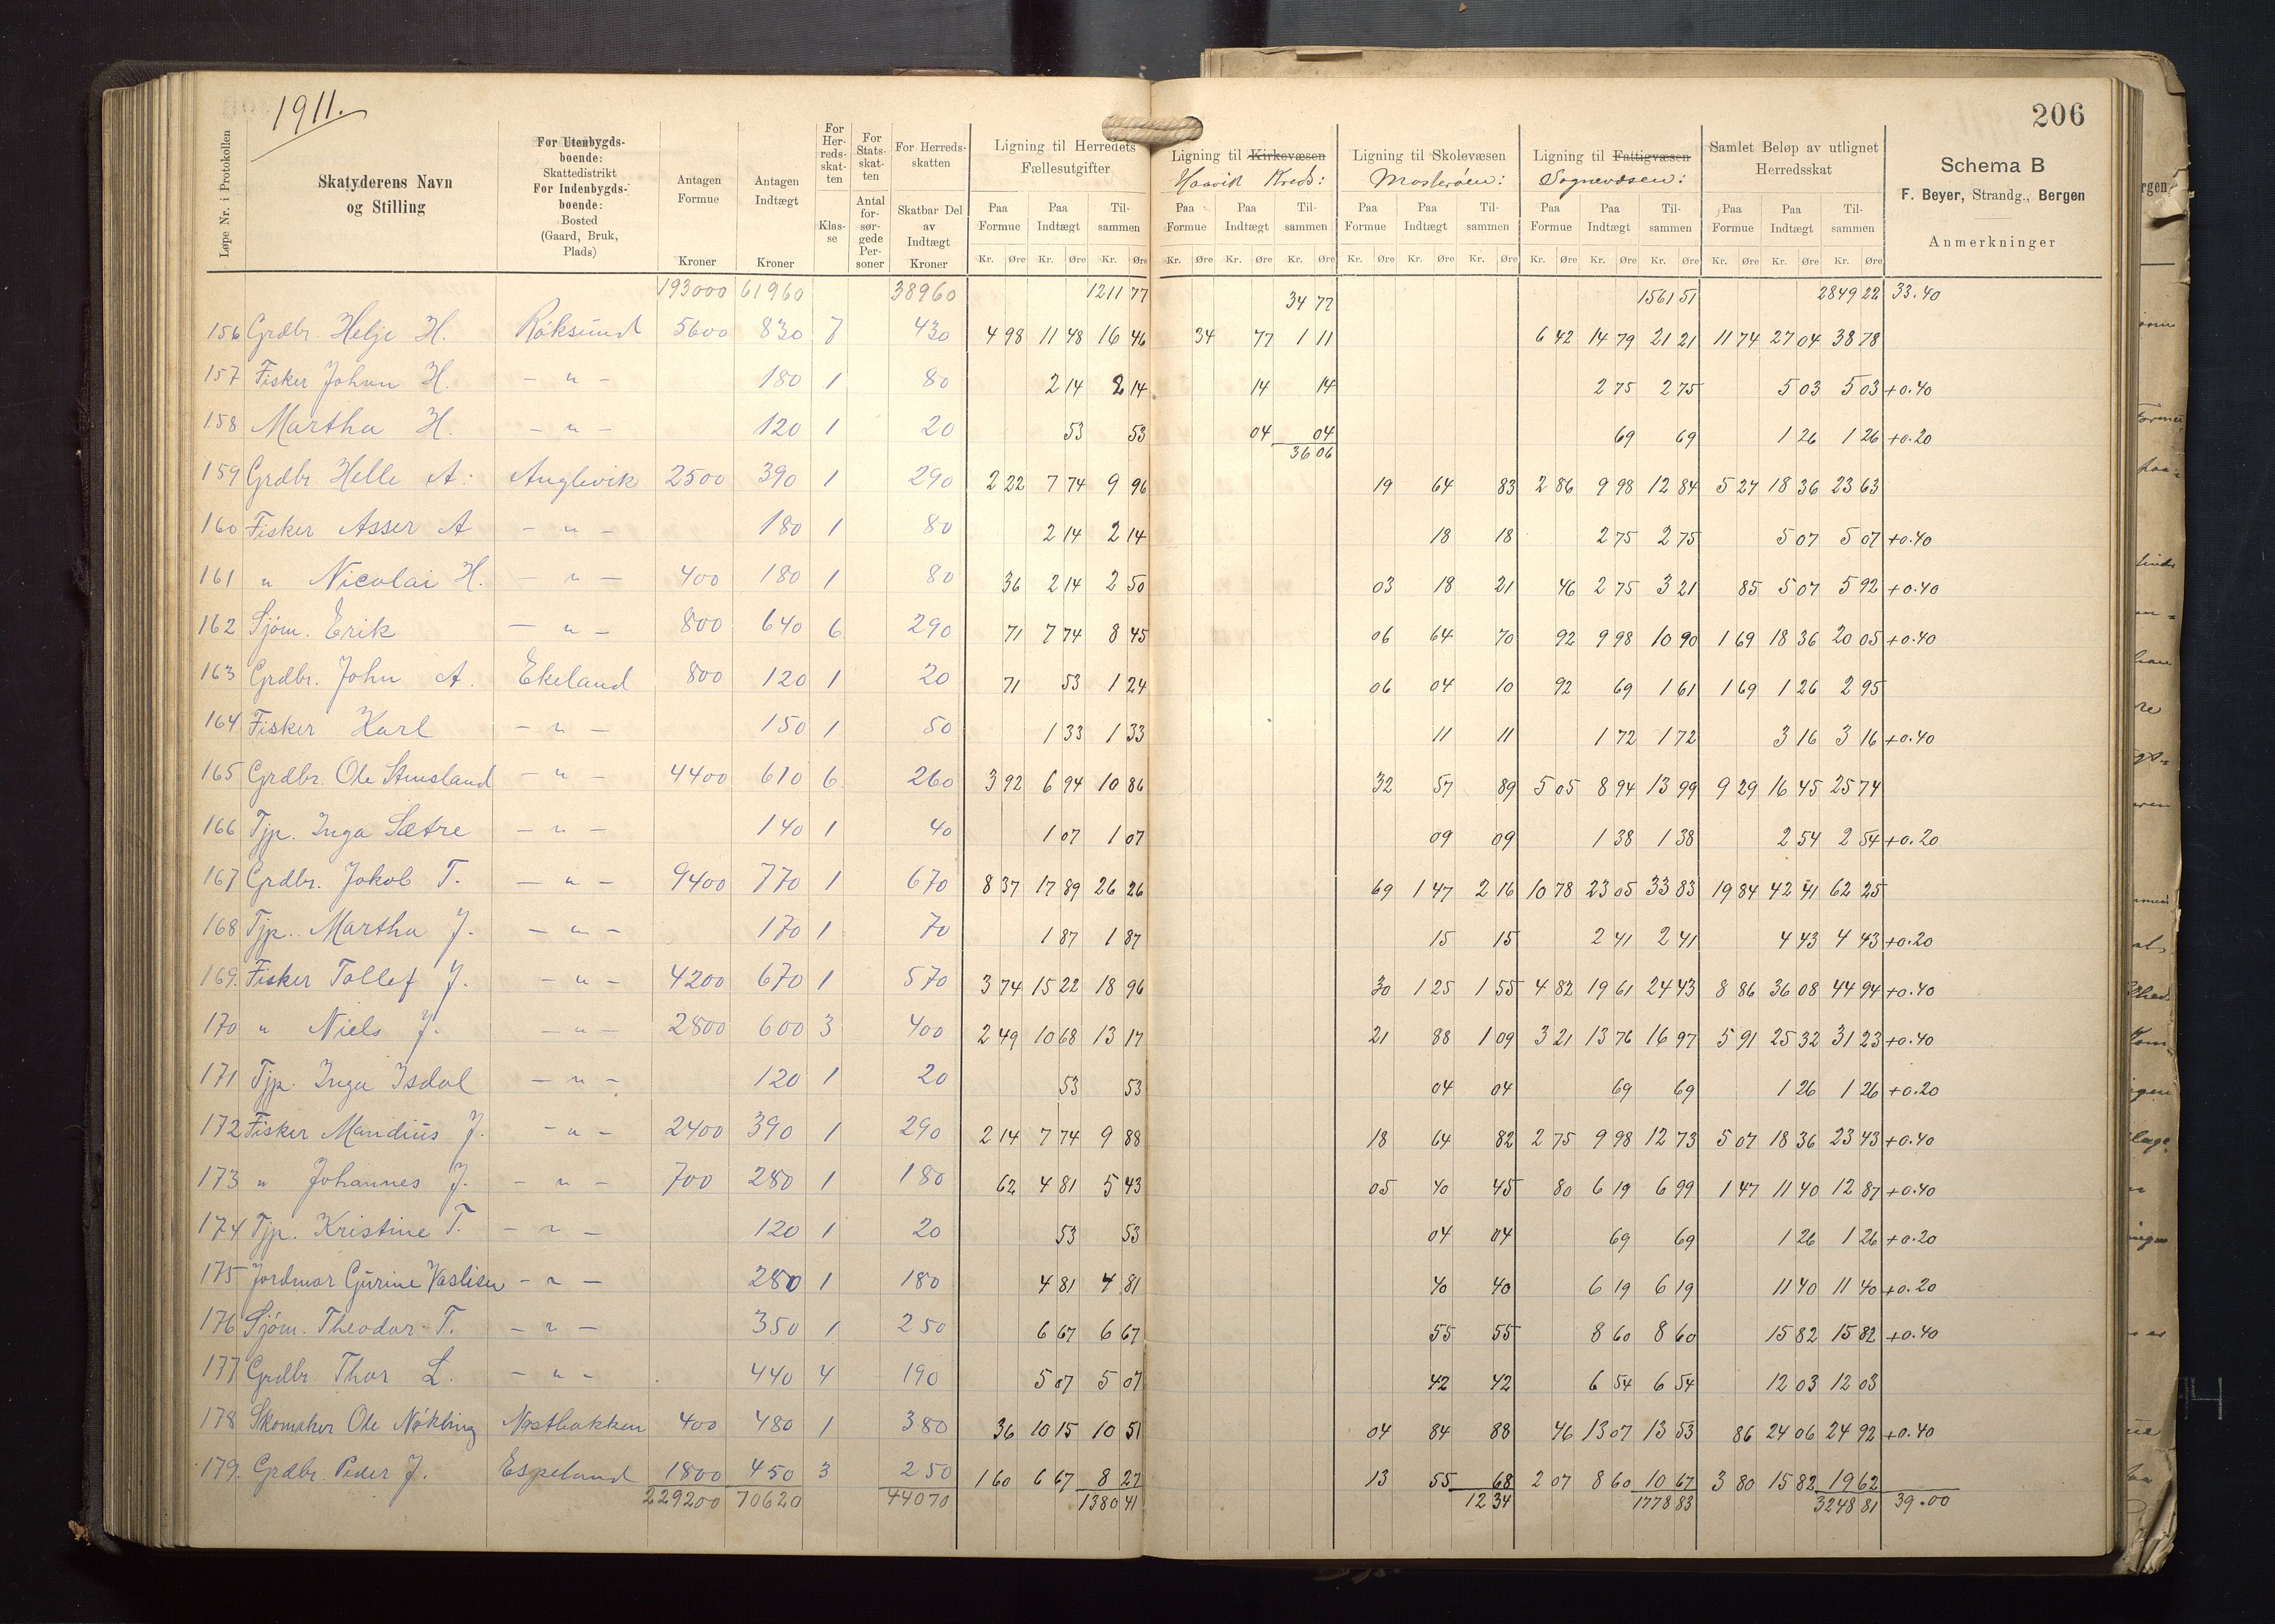 1911.
206
Løpe Nr. i Protokollen
Skatyderens Navn og Stilling
For Utenbygds-boende: Skattedistrikt For Indenbygds-boende: Bosted (Gaard, Bruk, Plads)
Antagen Formue Kroner
Antagen Indtægt Kroner
For Herredsskatten Klasse
For Statsskatten Antal forsørgede Personer
For Herredsskatten Skatbar Del av Indtægt Kroner
Ligning til Herredets Fællesutgifter
Ligning til Kirkevæsen Haavik Kreds:
Ligning til Skolevæsen Mosterøen:
Ligning til Fattigvæsen Sognevæsen:
Samlet Beløp av utlignet Herredsskat
Schema B
F. Beyer, Strandg., Bergen
Anmerkninger
Paa Formue Paa Indtægt Tilsammen Paa Formue Paa Indtægt Tilsammen Paa Formue Paa Indtægt Tilsammen Paa Formue Paa Indtægt Tilsammen Paa Formue Paa Indtægt Tilsammen
Kr. Øre Kr. Øre Kr. Øre Kr. Øre Kr. Øre Kr. Øre Kr. Øre Kr. Øre Kr. Øre Kr. Øre Kr. Øre Kr. Øre Kr. Øre Kr. Øre Kr. Øre
193000 61960 38960 1211 77 34 77 1561 51 2849 22 33.40
156 Grdbr. Helje H. Röksund 5600 830 7 430 4 98 11 48 16 46 34 77 1 11 6 42 14 79 21 21 11 74 27 04 38 78
157 Fisker Johan H. - " - 180 1 80 2 14 2 14 14 14 2 75 2 75 5 03 5 03 +0.40
158 Martha H. - " - 120 1 20 53 53 04 04 69 69 1 26 1 26 +0.20
36 06
159 Grdbr. Helle A. Auglevik 2500 390 1 290 2 22 7 74 9 96 19 64 83 2 86 9 98 12 84 5 27 18 36 23 63
160 Fisker Asser A - " - 180 1 80 2 14 2 14 18 18 2 75 2 75 5 07 5 07 +0.40
161 " Nicolai H. - " - 400 180 1 80 36 2 14 2 50 03 18 21 46 2 75 3 21 85 5 07 5 92 +0.40
162 Sjöm. Erik - " - 800 640 6 290 71 7 74 8 45 06 64 70 92 9 98 10 90 1 69 18 36 20 05 +0.40
163 Grdbr. John A. Ekeland 800 120 1 20 71 53 1 24 06 04 10 92 69 1 61 1 69 1 26 2 95
164 Fisker Karl - " - 150 1 50 1 33 1 33 11 11 1 72 1 72 3 16 3 16 +0.40
165 Grdbr. Ole Stusland - " - 4400 610 6 260 3 92 6 94 10 86 32 57 89 5 05 8 94 13 99 9 29 16 45 25 74
166 Tjp. Inga Sætre - " - 140 1 40 1 07 1 07 09 09 1 38 1 38 2 54 2 54 +0.20
167 Grdbr. Jakob T. - " - 9400 770 1 670 8 37 17 89 26 26 69 1 47 2 16 10 78 23 05 33 83 19 84 42 41 62 25
168 Tjp. Martha J. - " - 170 1 70 1 87 1 87 15 15 2 41 2 41 4 43 4 43 +0.20
169. Fisker Tollef J. - " - 4200 670 1 570 3 74 15 22 18 96 30 1 25 1 55 4 82 19 61 24 43 8 86 36 08 44 94 +0.40
170 " Niels J. - " - 2800 600 3 400 2 49 10 68 13 17 21 88 1 09 3 21 13 76 16 97 5 91 25 32 31 23 +0.40
171 Tjp. Inga Isdal - " - 120 1 20 53 53 04 04 69 69 1 26 1 26 +0.20
172 Fisker Mandius J. - " - 2400 390 1 290 2 14 7 74 9 88 18 64 82 2 75 9 98 12 73 5 07 18 36 23 43 +0.40
173 " Johannes J. - " - 700 280 1 180 62 4 81 5 43 05 40 45 80 6 19 6 99 1 47 11 40 12 87 +0.40
174 Tjp. Kristine T. - " - 120 1 20 53 53 04 04 69 69 1 26 1 26 +0.20
175 Jordmor Gurine Vaslien - " - 280 1 180 4 81 4 81 40 40 6 19 6 19 11 40 11 40 +0.20
176 Sjöm. Theodor T. - " - 350 1 250 6 67 6 67 55 55 8 60 8 60 15 82 15 82 +0.40
177 Grdbr Thor L. - " - 440 4 190 5 07 5 07 42 42 6 54 6 54 12 03 12 03
178 Skomaker Ole Nökling Nøstbakken 400 480 1 380 36 10 15 10 51 04 84 88 46 13 07 13 53 86 24 06 24 92 +0.40
179. Grdbr. Peder J. Espeland 1800 450 3 250 1 60 6 67 8 27 13 55 68 2 07 8 60 10 67 3 80 15 82 19 62
229200 70620 44070 1380 41 12 34 1778 83 3248 81 39.00